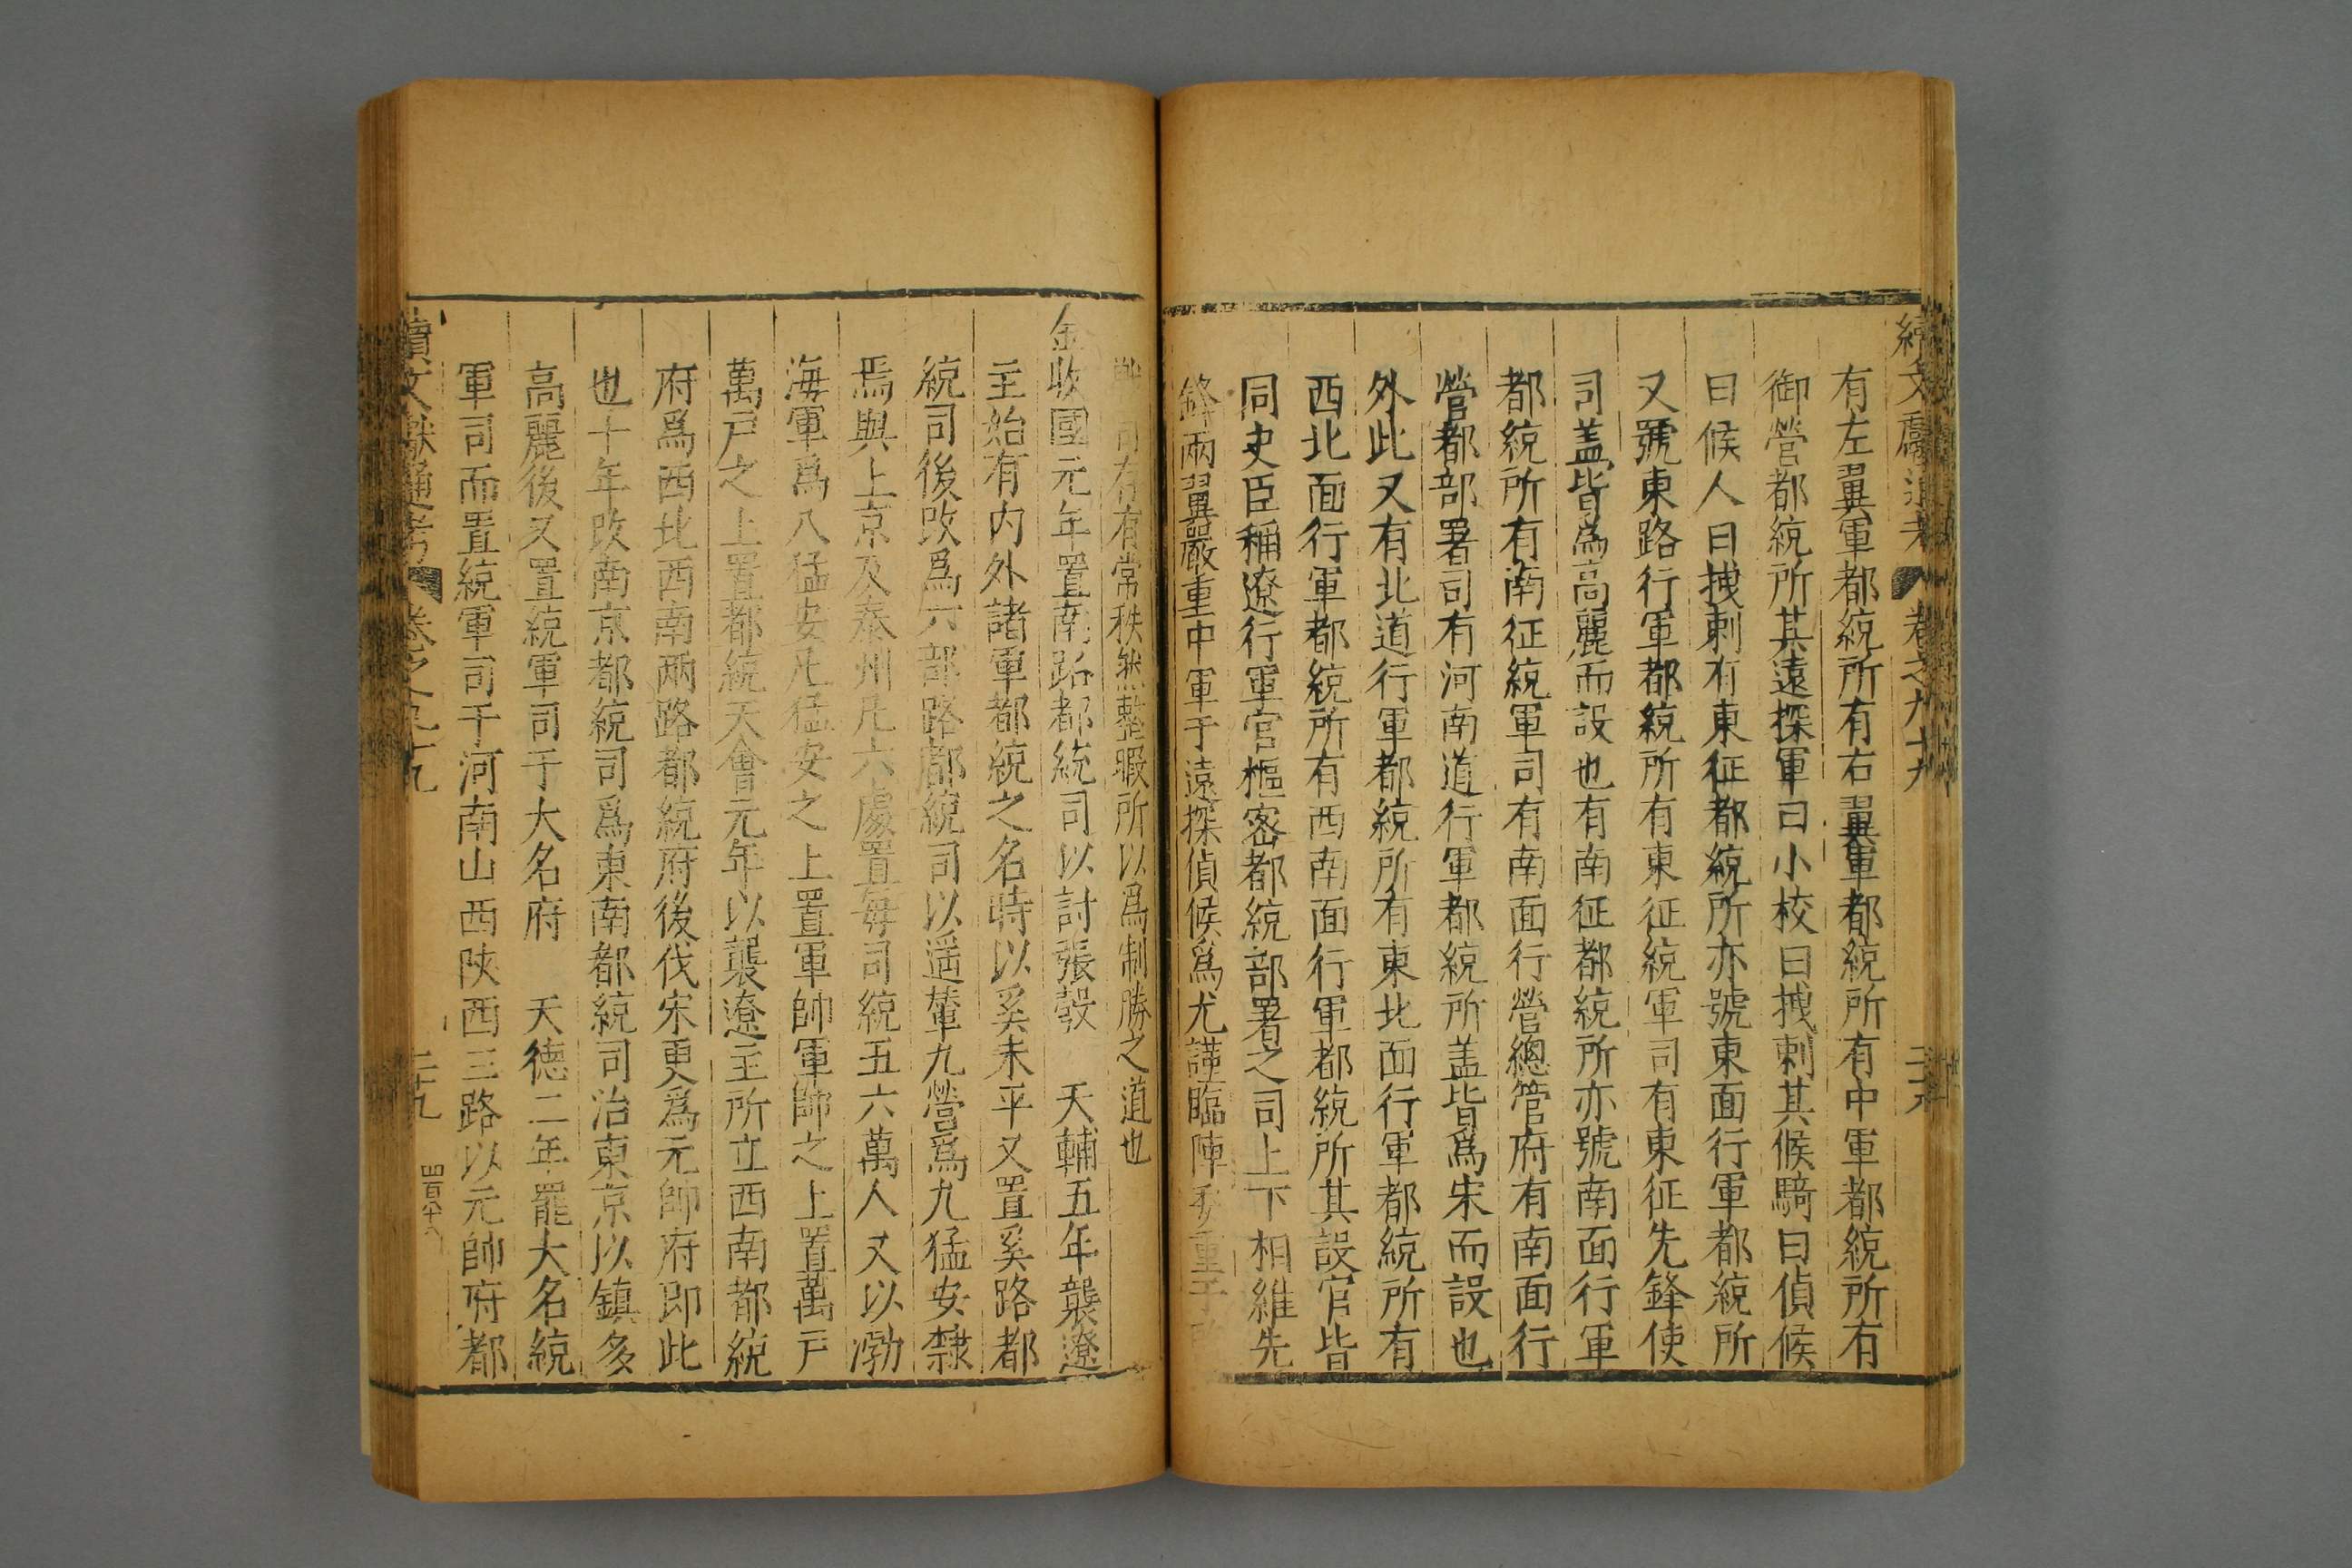 續文獻通考 卷之九十九
有左翼軍都統所有右翼軍都統所有中軍都統所有
御營都統所其遠探軍曰小校曰拽剌其候騎曰偵候
曰候人曰拽剌有東征都統所亦號東面行軍都統所
又號東路行軍都統所有東征統軍司有東征先鋒使
司盖皆爲高麗而設也有南征都統所亦號南面行軍
都統所有南征統軍司有南面行營總管府有南面行
營都部署司有河南道行軍都統所盖皆爲宋而設也
外此又有北道行軍都統所有東北面行軍都統所有
西北面行軍都統所有西南面行軍都統所其設官皆
同史臣稱遼行軍官樞密都統部署之司上下相維先
鋒兩翼嚴重中軍于遠探偵候爲尤謹臨陣委重于
司存有常秩然整暇所以爲制勝之道也
金收國元年置南路都統司以討張㲄 天輔五年襲遼
主始有内外諸軍都統之名時以奚未平又置奚路都
統司後改爲六部路都統司以遥輦九營爲九猛安隸
焉與上京及泰州凡六處置每司統五六萬人又以渤
海軍爲八猛安凡猛安之上置軍帥軍帥之上置萬戶
萬戶之上置都統天會元年以襲遼主所立西南都統
府爲西北西南兩路都統府後伐宋更爲元帥府即此
也十年改南京都統司爲東南都統司治東京以鎮
高麗後又置統軍司于大名府 天德二年罷大名統
軍司而置統軍司于河南山西陝西三路以元帥府都
續文獻通考 卷之九十九 二十九 四百六十八